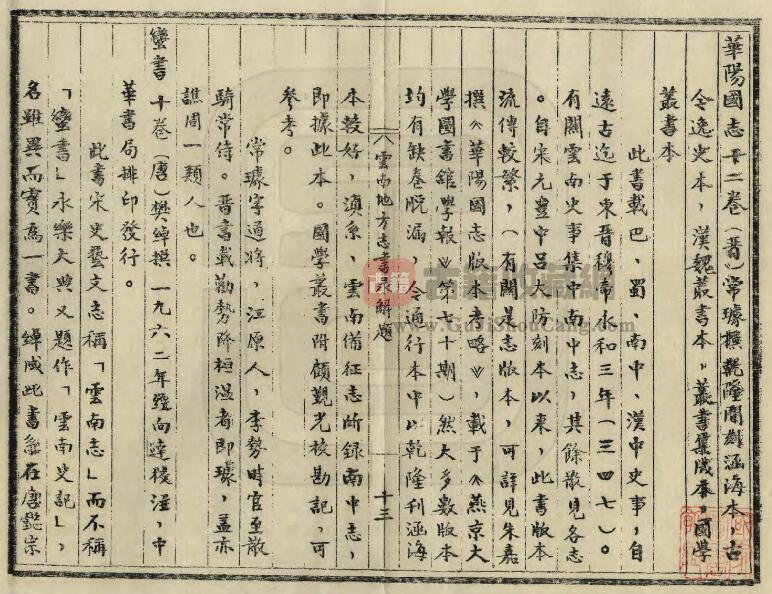 華陽國志十二卷（晋）常璩撰乾隆間刻涵海本，古
今逸史本，漢魏叢書本，叢書集成本，國學
叢書本
此書載巴、蜀、南中、漢中史事，自
遠古迄于東晋穆帝永和三年（三四七）。
有關雲南史事集中南中志，其餘散見各志
。自宋元豐中呂大防刻本以來，此書版本
流傳較繁，（有關是志版本，可詳見朱嘉
撰《華陽國志版本考略》，載于《燕京大
學圖書館學報》第七十期）然大多數版本
均有缺卷脱漏，今通行本中以乾隆刊涵海
《雲南地方志書录解題
十三
本較好，滇系，雲南備征志所録南中志，
即據此本。國學叢書附顧觀光校勘記，可
參考。
常璩字道將，江原人，李勢時官至散
騎常侍。晋書載勸勢降桓温者即璩，盖亦
譙周一類人也。
蠻書十卷（唐）樊綽撰一九六二年經向達校注，中
華書局排印發行。
此書宋史藝文志稱「雲南志」而不稱
「蠻書」永樂大典又題作「雲南史記」，
名雖異而實為一書。綽成此書盖在唐懿宗
古籍收藏網
www.GuJiShouCang.com